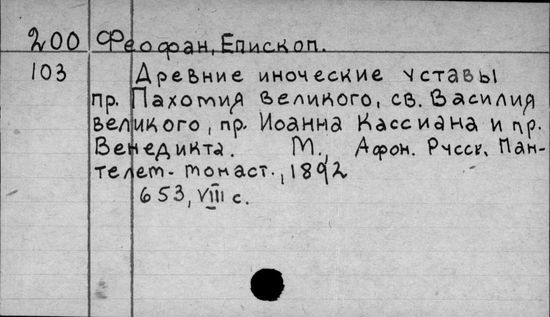 200 Феофан, Епископ.
103 Древние иноческие уставы
пр. Пахотия великого, св. Василия
великого, пр. Иоанна Кассиана и пр.
Венедикта. М., Афон. Русск. Пан-
телет- тонаст., 1892
653, VIII с.